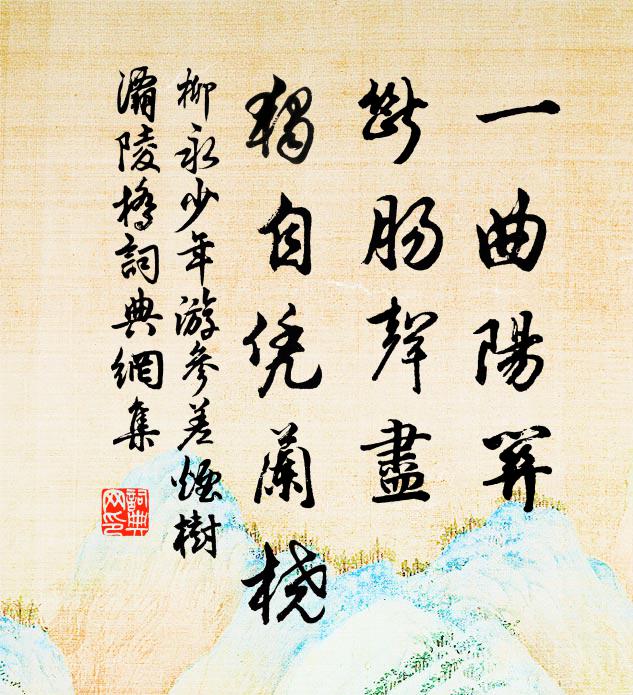 一曲陽關
斷腸聲盡
獨自凭蘭橈
柳永少年游參差煙樹
灞陵橋詞典網集
詞典
网印